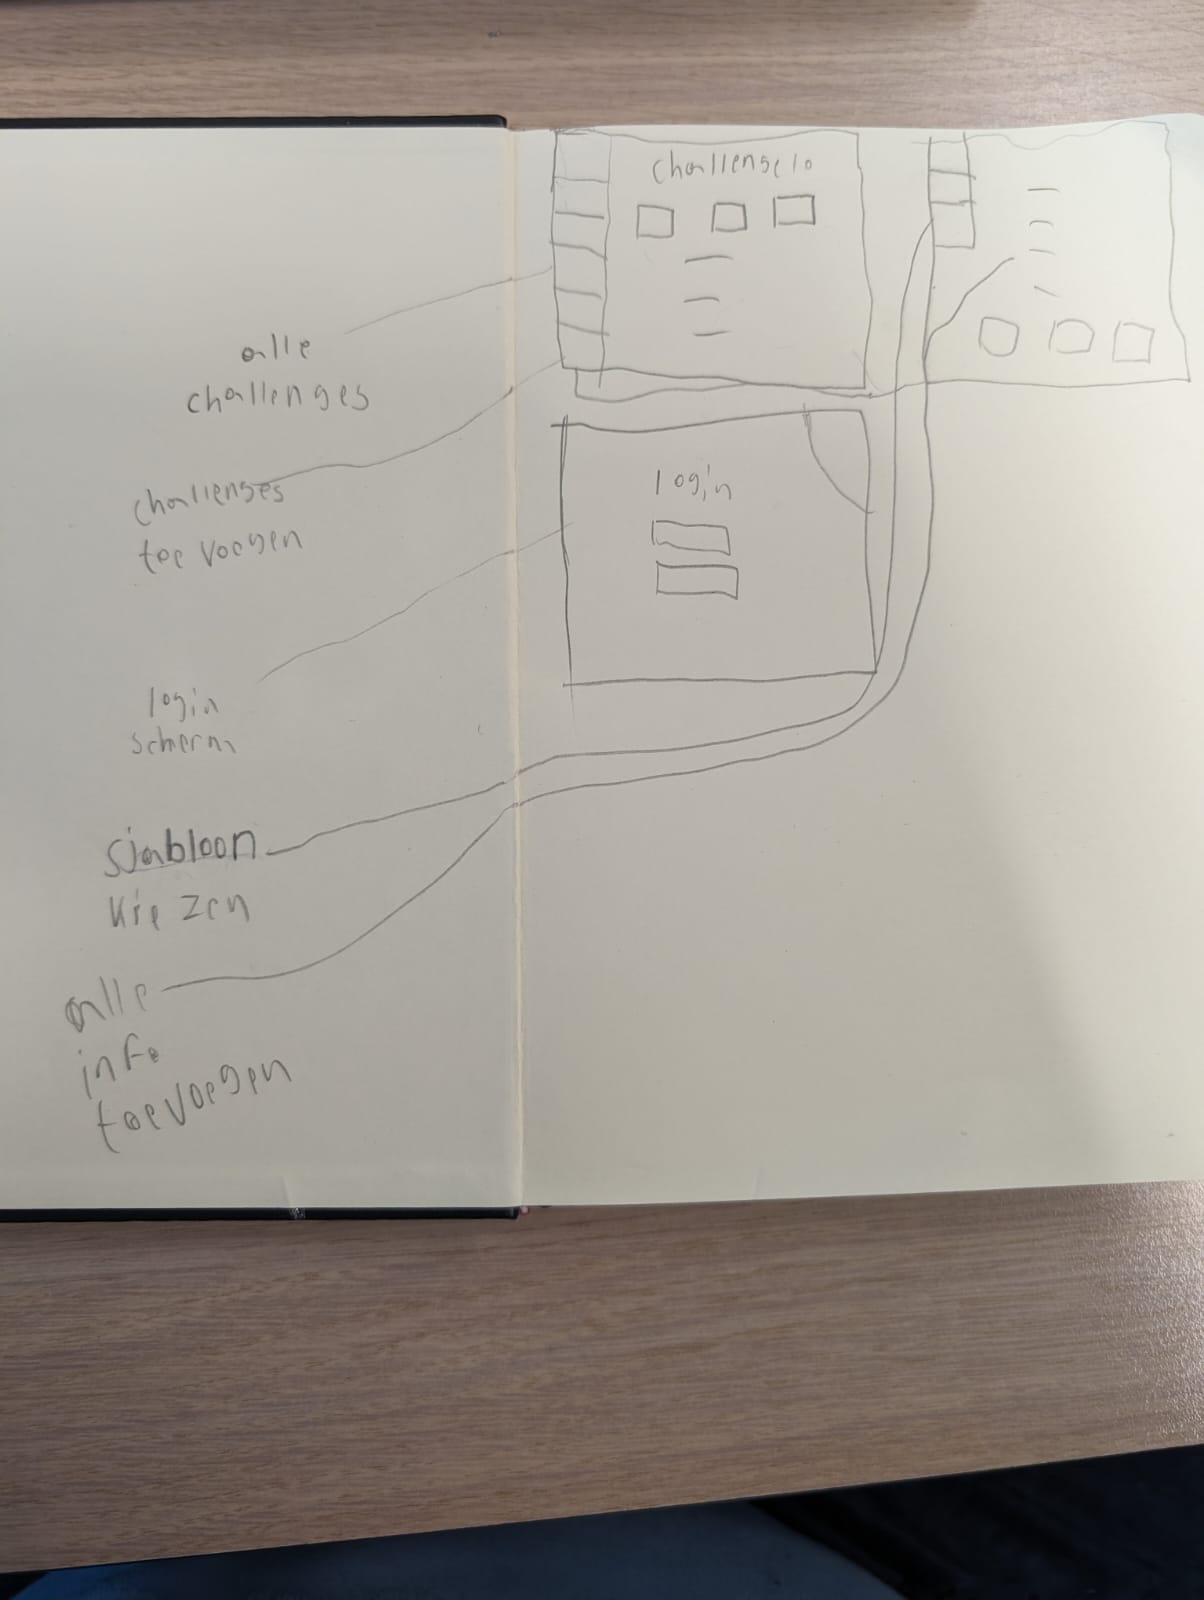 alle
challenges
challenges
toe voegen
login
scherm
sjabloon
kiezen
alle
info
toevoegen
challenge 10
login